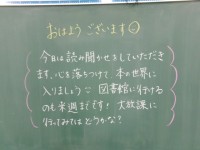 おはようございます☺
今日は読み聞かせをしていただき
ます。心を落ちつけて、本の世界に
入りましょう＝ 図書館に行ける
のも来週までです！大放課に
行ってみてはどうかな？